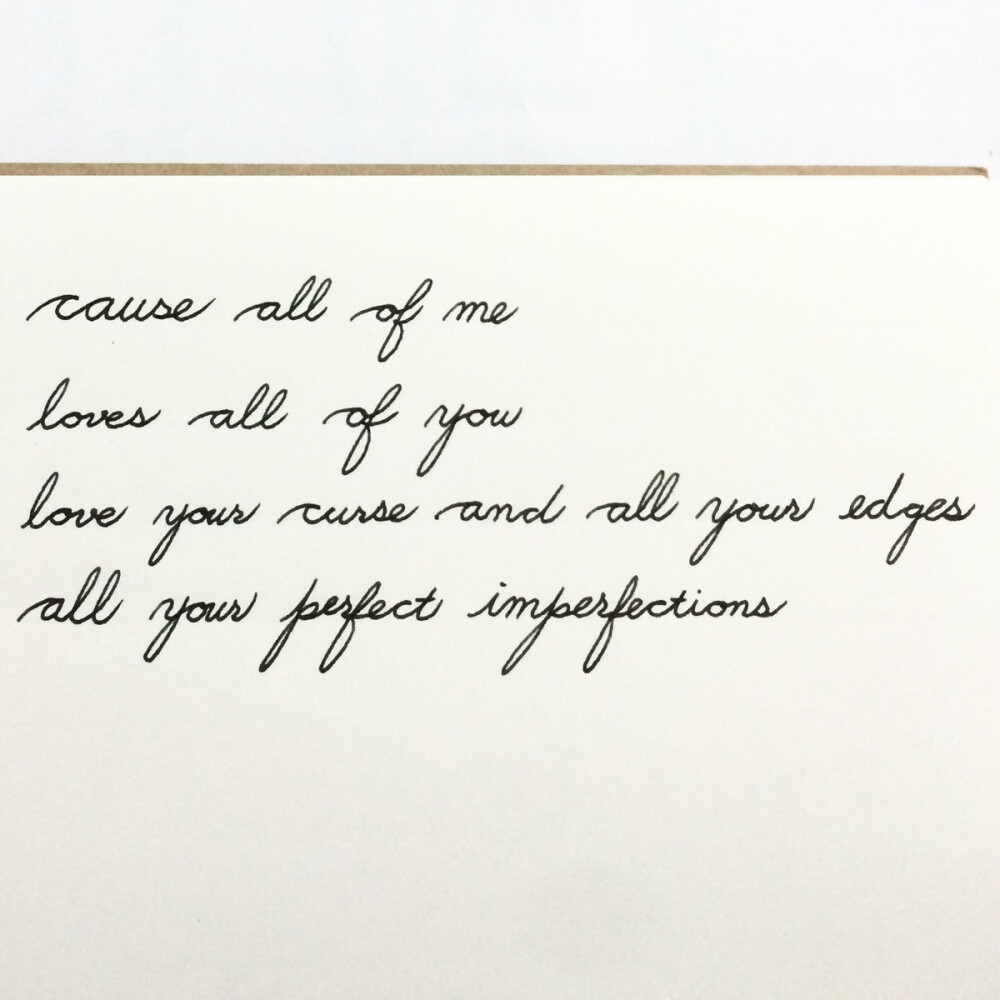 cause all of me
loves all of you
love your curse and all your edges
all your perfect imperfections